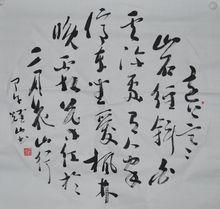 遠上寒
山石徑斜白
雲深處有人家
停車坐愛楓林
晚霜葉紅於
二月花山行